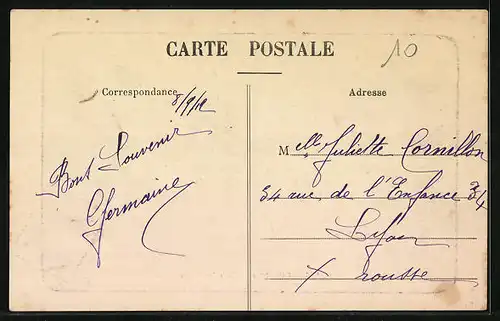 10
CARTE POSTALE
Correspondance
8/9/12
Adresse
Bons Souvenir
Germaine
Melle Juliette Cornillon
34 rue de l'Enfance 34
Lyon
X rousse